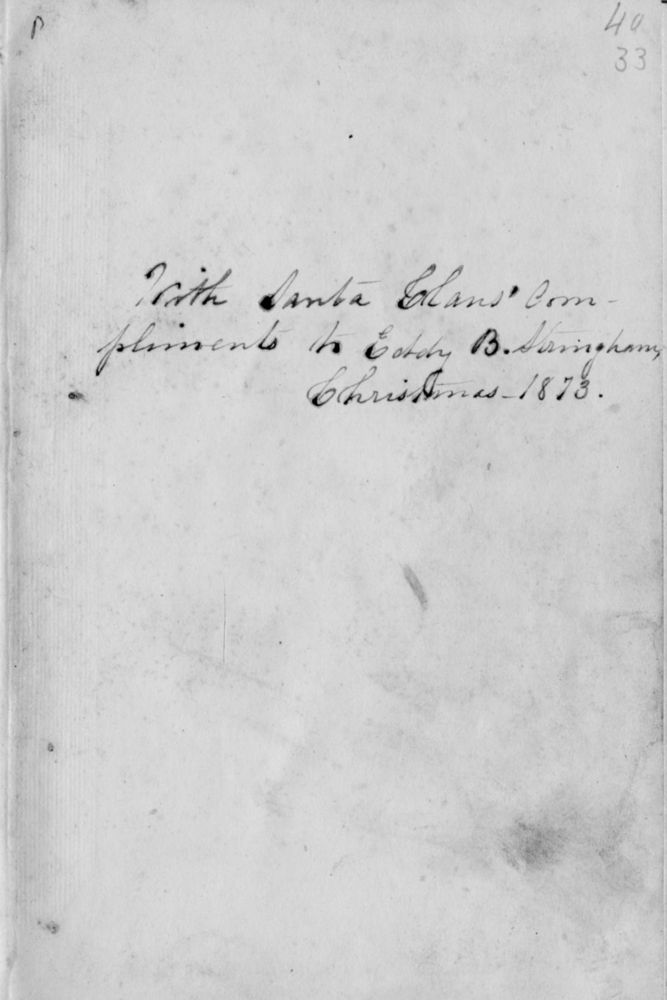 40
33
With Santa Claus' Com-
pliments to Eddy B. Stringham,
Christmas - 1873.